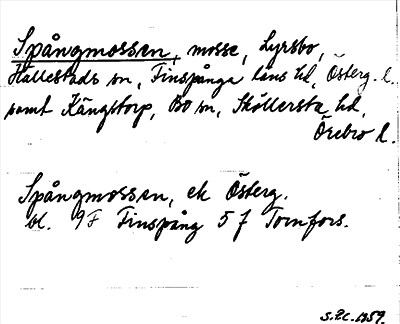 Spångmossen, mosse, Lyrsbo,
Hällestads sn, Finspånga läns hd, Österg. l.
samt Kängstorp, Bo sn, Sköllersta hd,
Örebro l.
Spångmossen, ek Österg.
bl. 9F Finspång 5 f Tomfors.
S.Z.C. 1959.